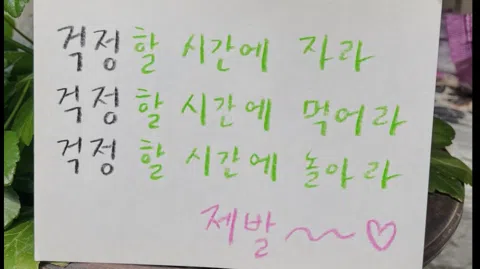 걱정할 시간에 자라
걱정할 시간에 먹어라
걱정할 시간에 놀아라
제발~~♡